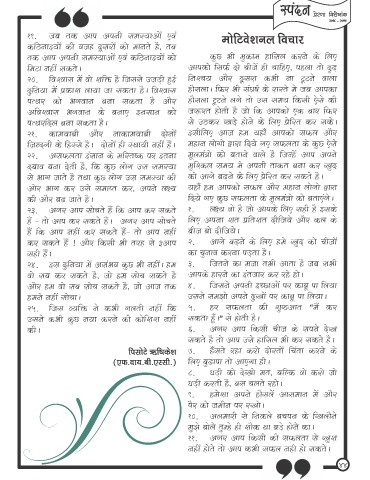 स्पंदन
१९. जब तक आप अपनी समस्याओं एवं
कठिनाइयों की वजह दूसरों को मानते है, तब
तक आप अपनी समस्याओं एवं कठिनाइयों को
मिटा नहीं सकते।
२०. विश्वास में वो शक्ति है जिससे उजड़ी हुई
दुनिया में प्रकाश लाया जा सकता है। विश्वास
पत्थर को भगवान बना सकता है और
अविश्वास भगवान के बनाए इन्सान को
पत्थरदिल बना सकता है।
२१. कामयाबी और नाकामयाबी दोनों
जिन्दगी के हिस्से है। दोनों ही स्थायी नहीं हैं।
२२. असफलता इंसान के मस्तिष्क पर इतना
दबाव बना देती है, कि कुछ लोग उस समस्या
से भाग जाते हैं तथा कुछ लोग उस समस्या की
ओर भाग कर उसे समाप्त कर, अपने लक्ष्य
की ओर बढ जाते है।
२३. अगर आप सोचते हैं कि आप कर सकते
हैं - तो आप कर सकते हैं। अगर आप सोचते
हैं कि आप नहीं कर सकते हैं- तो आप नहीं
कर सकते हैं ! और किसी भी तरह से आप
सही हैं।
२४. इस दुनिया में असंभव कुछ भी नहीं। हम
वो सब कर सकते है, जो हम सोच सकते है
और हम वो सब सोच सकते है, जो आज तक
हमने नहीं सोचा।
२५. जिस व्यक्ति ने कभी गलती नहीं कि
उसने कभी कुछ नया करने की कोशिश नहीं
की।
पिसोटे ऋषिकेश
(एफ.वाय.बी.एस्सी.)
मोटिवेशनल विचार
कुछ भी मुकाम हासिल करने के लिए
आपको सिर्फ दो चीजें ही चाहिए, पहला तो दृढ़
निश्चय और दूसरा कभी ना टूटने वाला
होसला। फिर भी संघर्ष के रास्ते मे जब आपका
होसला टूटने लगे तो उस समय किसी ऐसे की
जरूरत होती है जो कि आपको एक बार फिर
से डटकर खड़े होने के लिए प्रेरित कर सके।
इसीलिए आज हम यहाँ आपको सफल और
महान लोगो द्वारा दिये गए सफलता के कुछ ऐसे
मूलमंत्रो को बताने वाले है जिन्हें आप अपने
मुश्किल समय मे अपनी ताकत बना कर खुद
को आगे बढ़ने के लिए प्रेरित कर सकते है।
यहाँ हम आपको सफल और महान लोगो द्वारा
दिये गए कुछ सफलता के मूलमंत्रो को बताएंगे।
१. लक्ष्य वो है जो आपके लिए सही है इसके
लिए अपना शत प्रतिशत दीजिये और कल के
बीज बो दीजिये।
२. आगे बढ़ने के लिए हमे खुद को चीजों
का चुनाव करना पड़ता है।
३. जितने का मजा तभी आता है जब सभी
आपके हारने का इंतजार कर रहे हो।
४. जिसने अपनी इच्छाओं पर काबू पा लिया
उसने समझो अपने दुःखों पर काबू पा लिया।
५. हर सफलता की शुरुआत "में कर
सकता हूँ।" से होती है।
६. अगर आप किसी चीज़ के सपने देख
सकते है तो आप उसे हासिल भी कर सकते है।
७. हँसते रहा करो दोस्तों चिंता करने के
लिए बुढ़ापा तो आएगा ही।
८. घड़ी को देखो मत, बल्कि वो करो जो
घड़ी करती है, बस चलते रहो।
९. हमेशा अपने होसले आसमान में और
पैर को जमीन पर रखो।
१०. अलमारी से निकले बचपन के खिलौने
मुझे बोले तुम्हे ही शौक था बड़े होने का।
११. अगर आप किसी की सफलता से खुश
नहीं होते तो आप कभी सफल नही हो सकते।